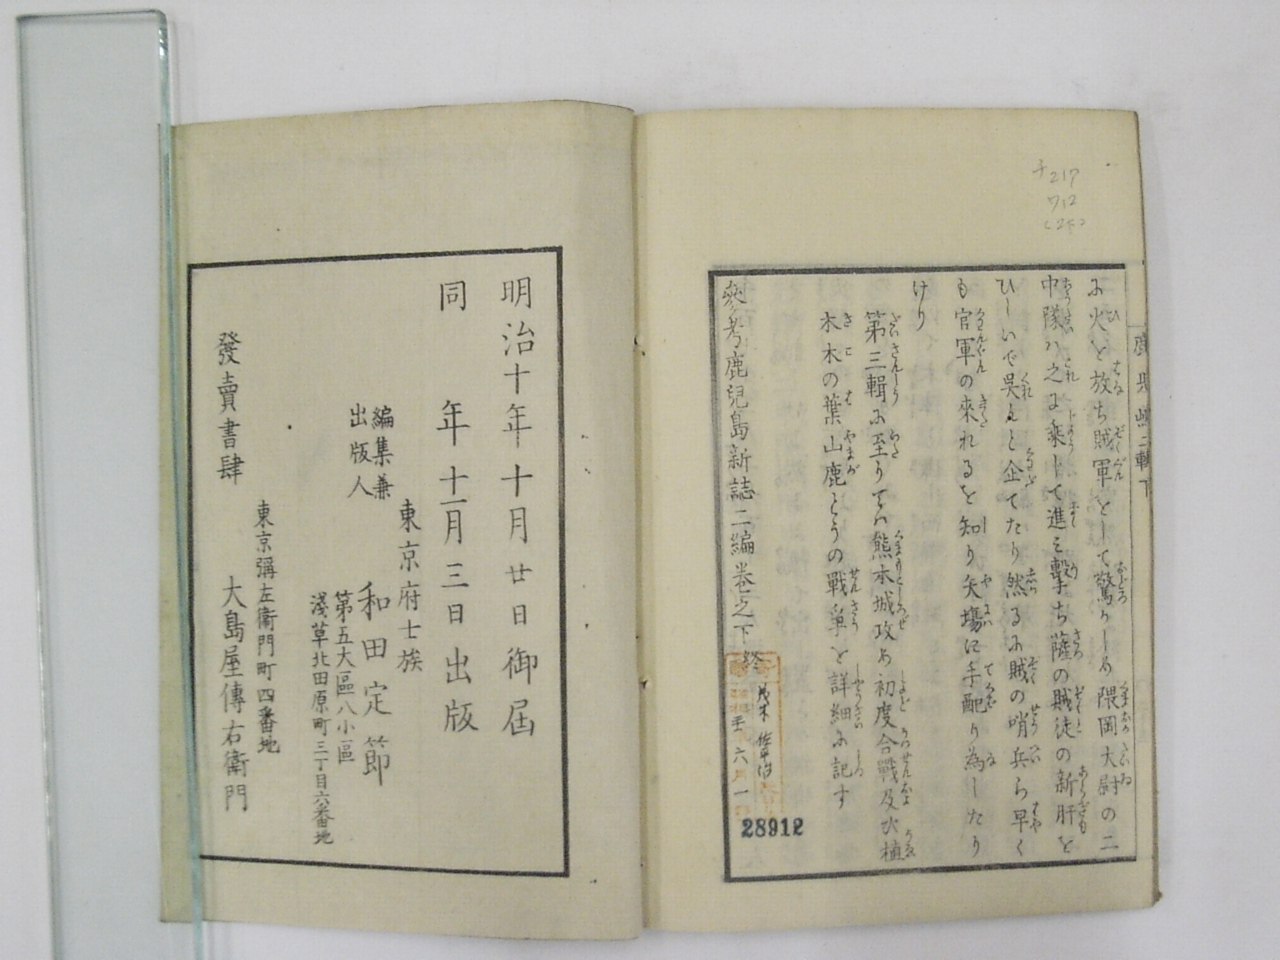 217
712
鹿児島二輯下
み火を放ち賊軍をして驚かしめ隈岡大尉の二
中隊ハ之に乘して進ミ擊ち薩の賊徒の新肝を
ひしいで呉んと企てたり然るに賊の哨兵ら早く
も官軍の來れるを知り矢塲に手配り為したり
けり
第三輯に至りてハ熊本城攻め初度合戰及び植
木木の葉山鹿とうの戰爭を詳細に記す
參考鹿兒島新誌二編卷之下終
28912
明治十年十月廿日御屆
同年十一月三日出版
編集兼
出版人
東京府士族
和田定節
第五大區八小區
淺草北田原町三丁目六番地
發賣書肆
東京彌左衞門町四番地
大島屋傳右衞門